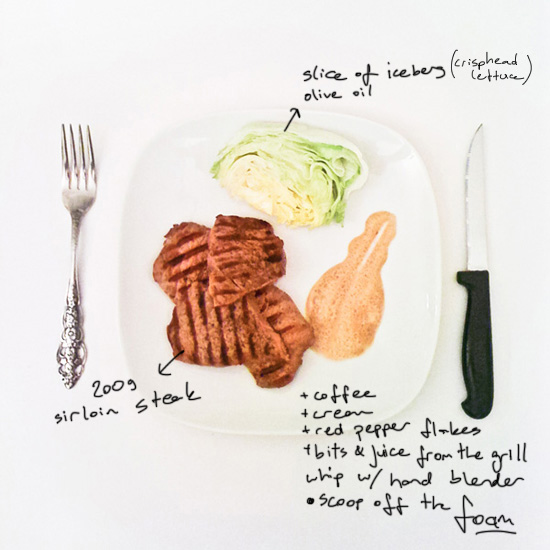 slice of iceberg (crisphead lettuce)
olive oil
200g
sirloin steak
+ coffee
+ cream
+ red pepper flakes
+ bits & juice from the grill
whip w/ hand blender
• scoop off the foam